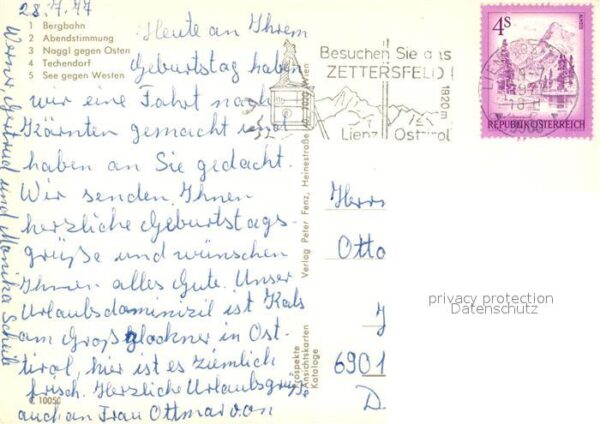 28.7.77
1 Bergbahn
2 Abendstimmung
3 Naggl gegen Osten
4 Techendorf
5 See gegen Westen
Heute an Ihrem
Geburtstag haben
wir eine Fahrt nach
Kärnten gemacht und
haben an Sie gedacht.
Wir senden Ihnen
herzliche Geburtstags-
grüße und wünschen
Ihnen alles Gute. Unser
Urlaubsdominizil ist Kals
am Großglockner in Ost-
tirol, hier ist es ziemlich
frisch. Herzliche Urlaubsgrüße
auch an Frau Ottmar von
Werner, Gertrud und Monika
C 10050
Besuchen Sie das
ZETTERSFELD!
1820 m
Lienz Osttirol
4S
REPUBLIK ÖSTERREICH
Verlag Peter Fenz, Heinestraße 1020 Wien
Prospekte
Ansichtskarten
Kataloge
Herrn
Otto
J
6901
D
privacy protection
Datenschutz